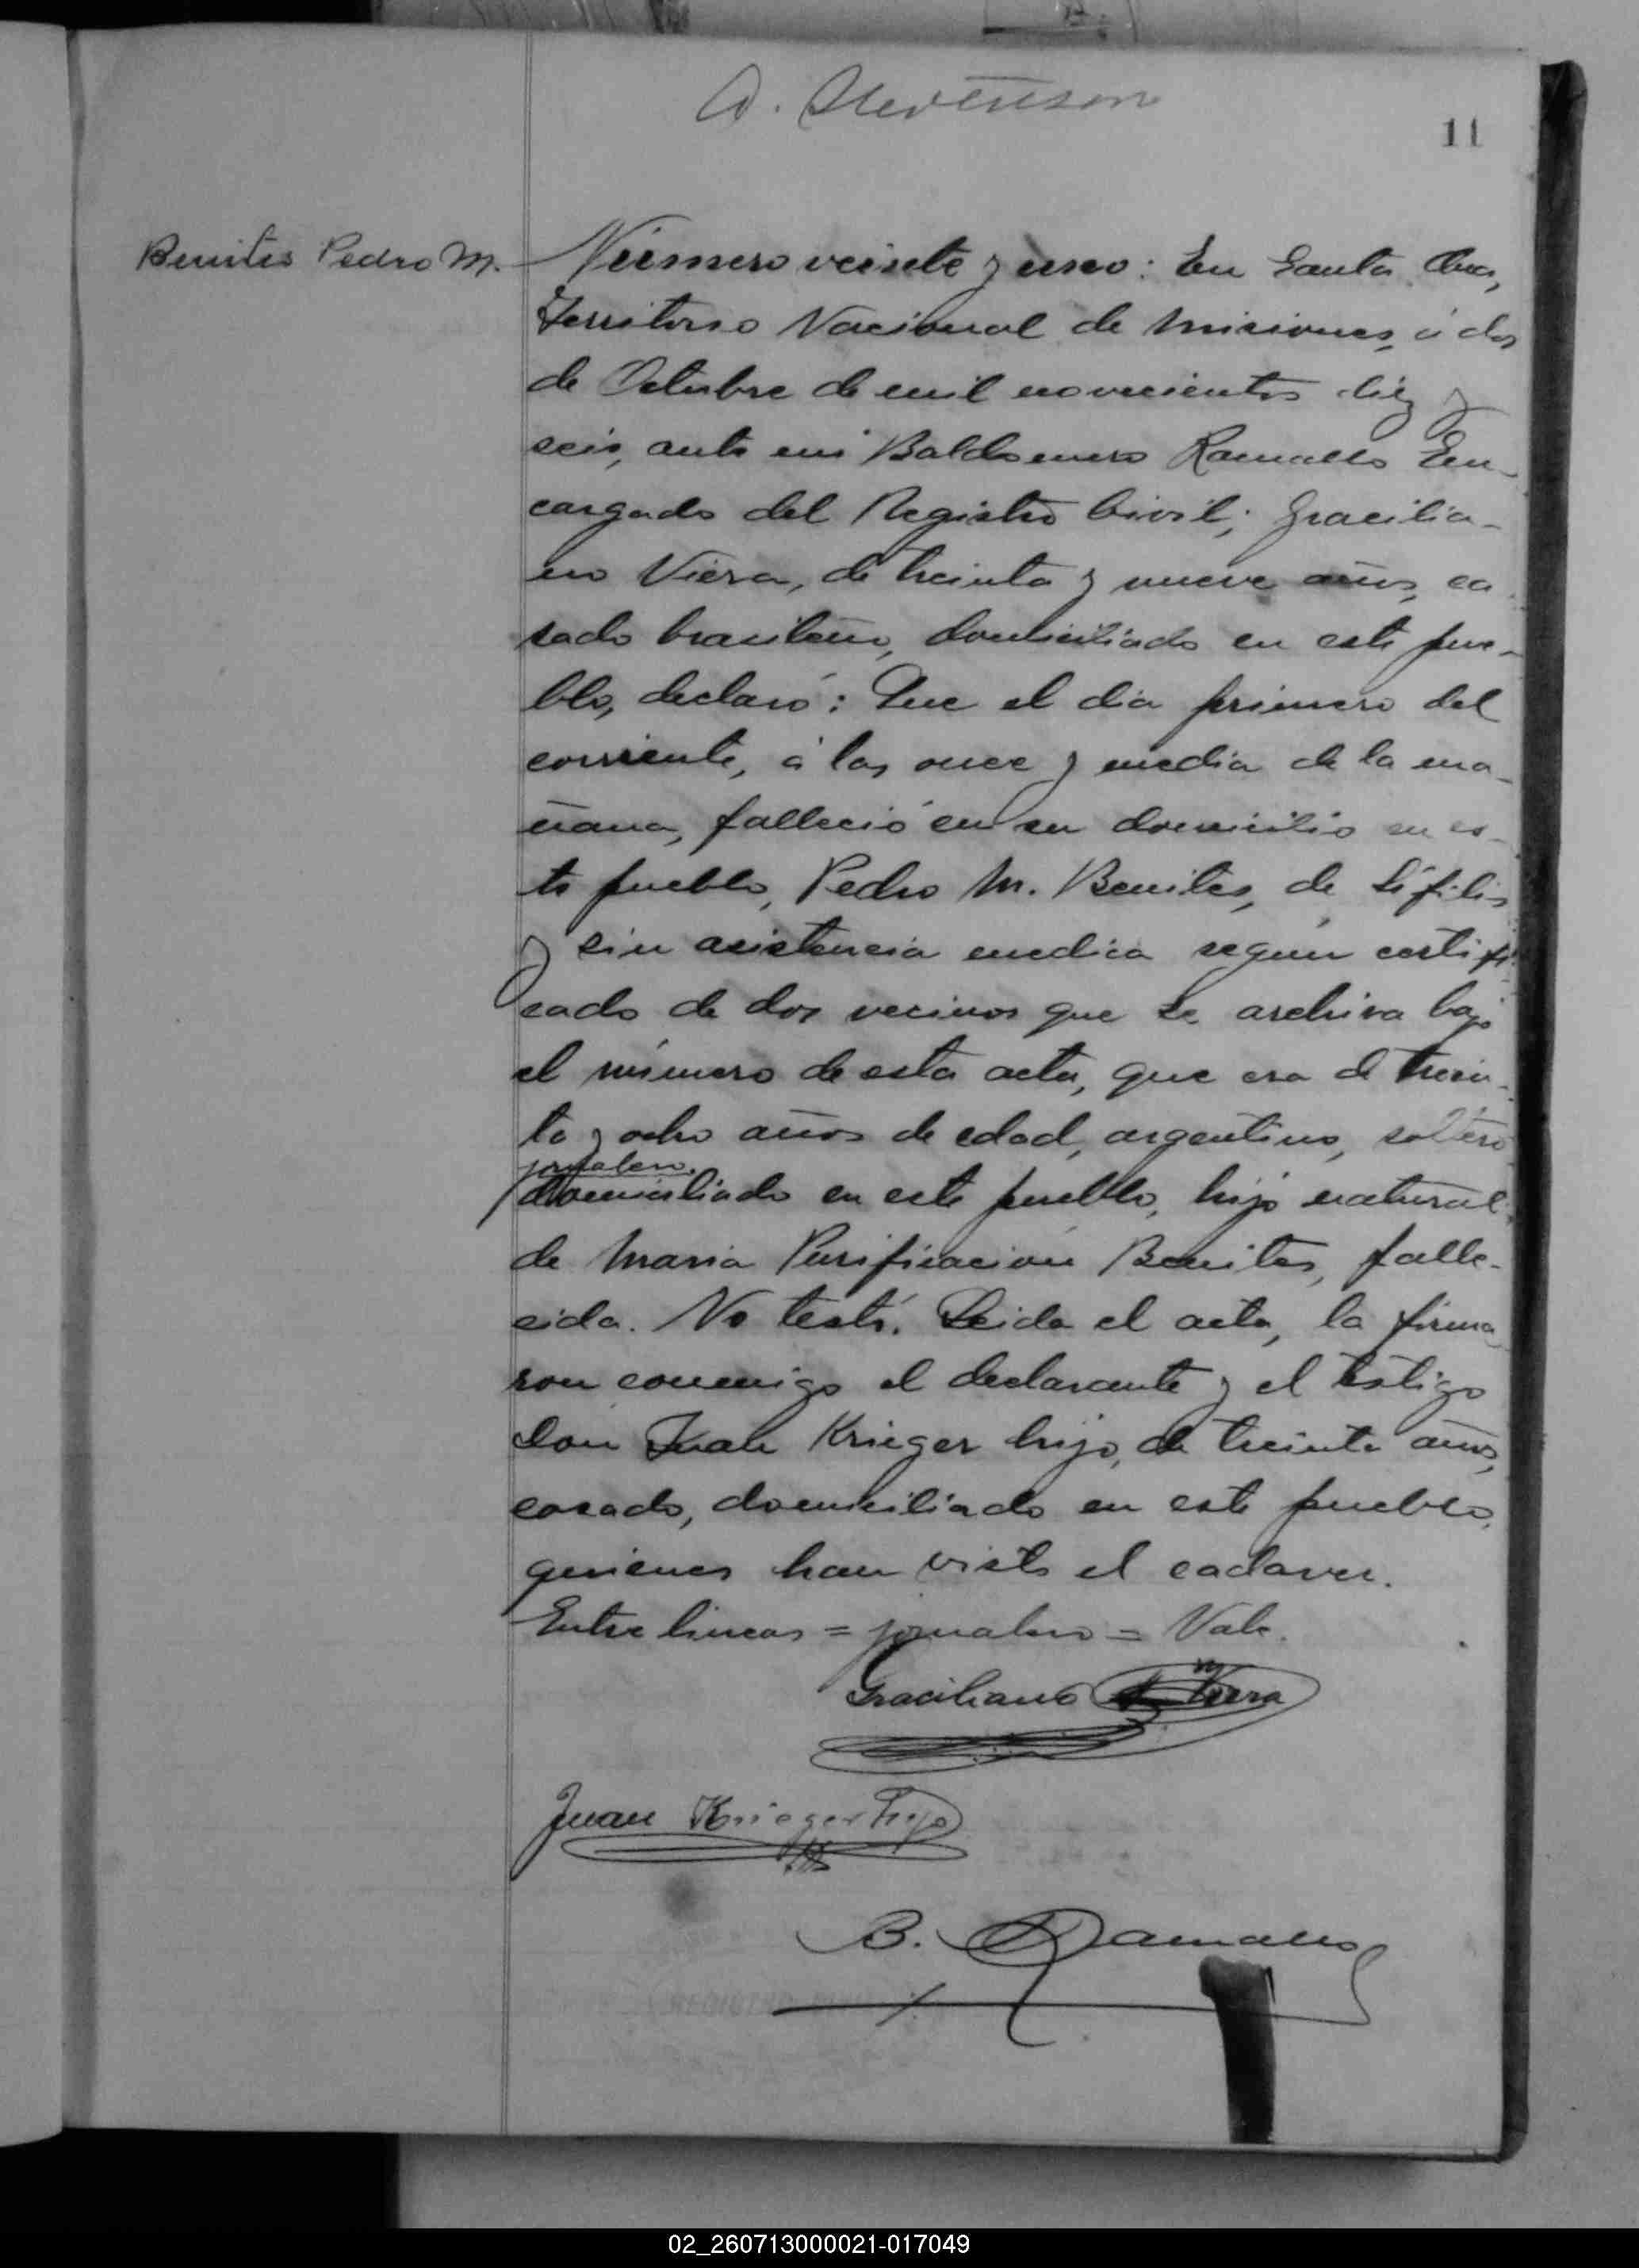 A. Stevenson
11
Benites Pedro M.
Número veinte y uno: En Santa Ana,
Territorio Nacional de Misiones, á dos
de Octubre de mil novecientos diez y
seis, ante mi Baldomero Ramallo En-
cargado del Registro Civil; Gracilia-
no Viera, de treinta y nueve años, ca
sado brasileño, domiciliado en este pue-
blo, declaró: Que el dia primero del
corriente, á las once y media de la ma-
ñana, falleció en su domicilio en es-
te pueblo, Pedro M. Benites, de Sífilis
y sin asistencia medica según certifi
cado de dos vecinos que se archiva bajo
el número de esta acta, que era de trein-
ta y ocho años de edad, argentino, soltero
jornalero.
domiciliado en este pueblo, hijo natural
de Maria Purificación Benites, falle-
cida. No testó. Leida el acta, la firma
ron conmigo el declarante y el testigo
Don Juan Krieger hijo, de treinta años,
casado, domiciliado en este pueblo,
quienes han visto el cadaver.
Entre lineas = jornalero = Vale.
Graciliano Viera
Juan Krieger hijo
B. Ramallo
02_260713000021-017049